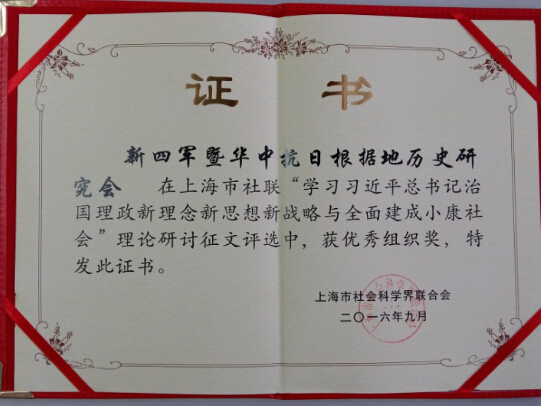 证 书
新四军暨华中抗日根据地历史研
究会 在上海市社联“学习习近平总书记治
国理政新理念新思想新战略与全面建成小康社
会”理论研讨征文评选中，获优秀组织奖，特
发此证书。
上海市社会科学界联合会
二〇一六年九月